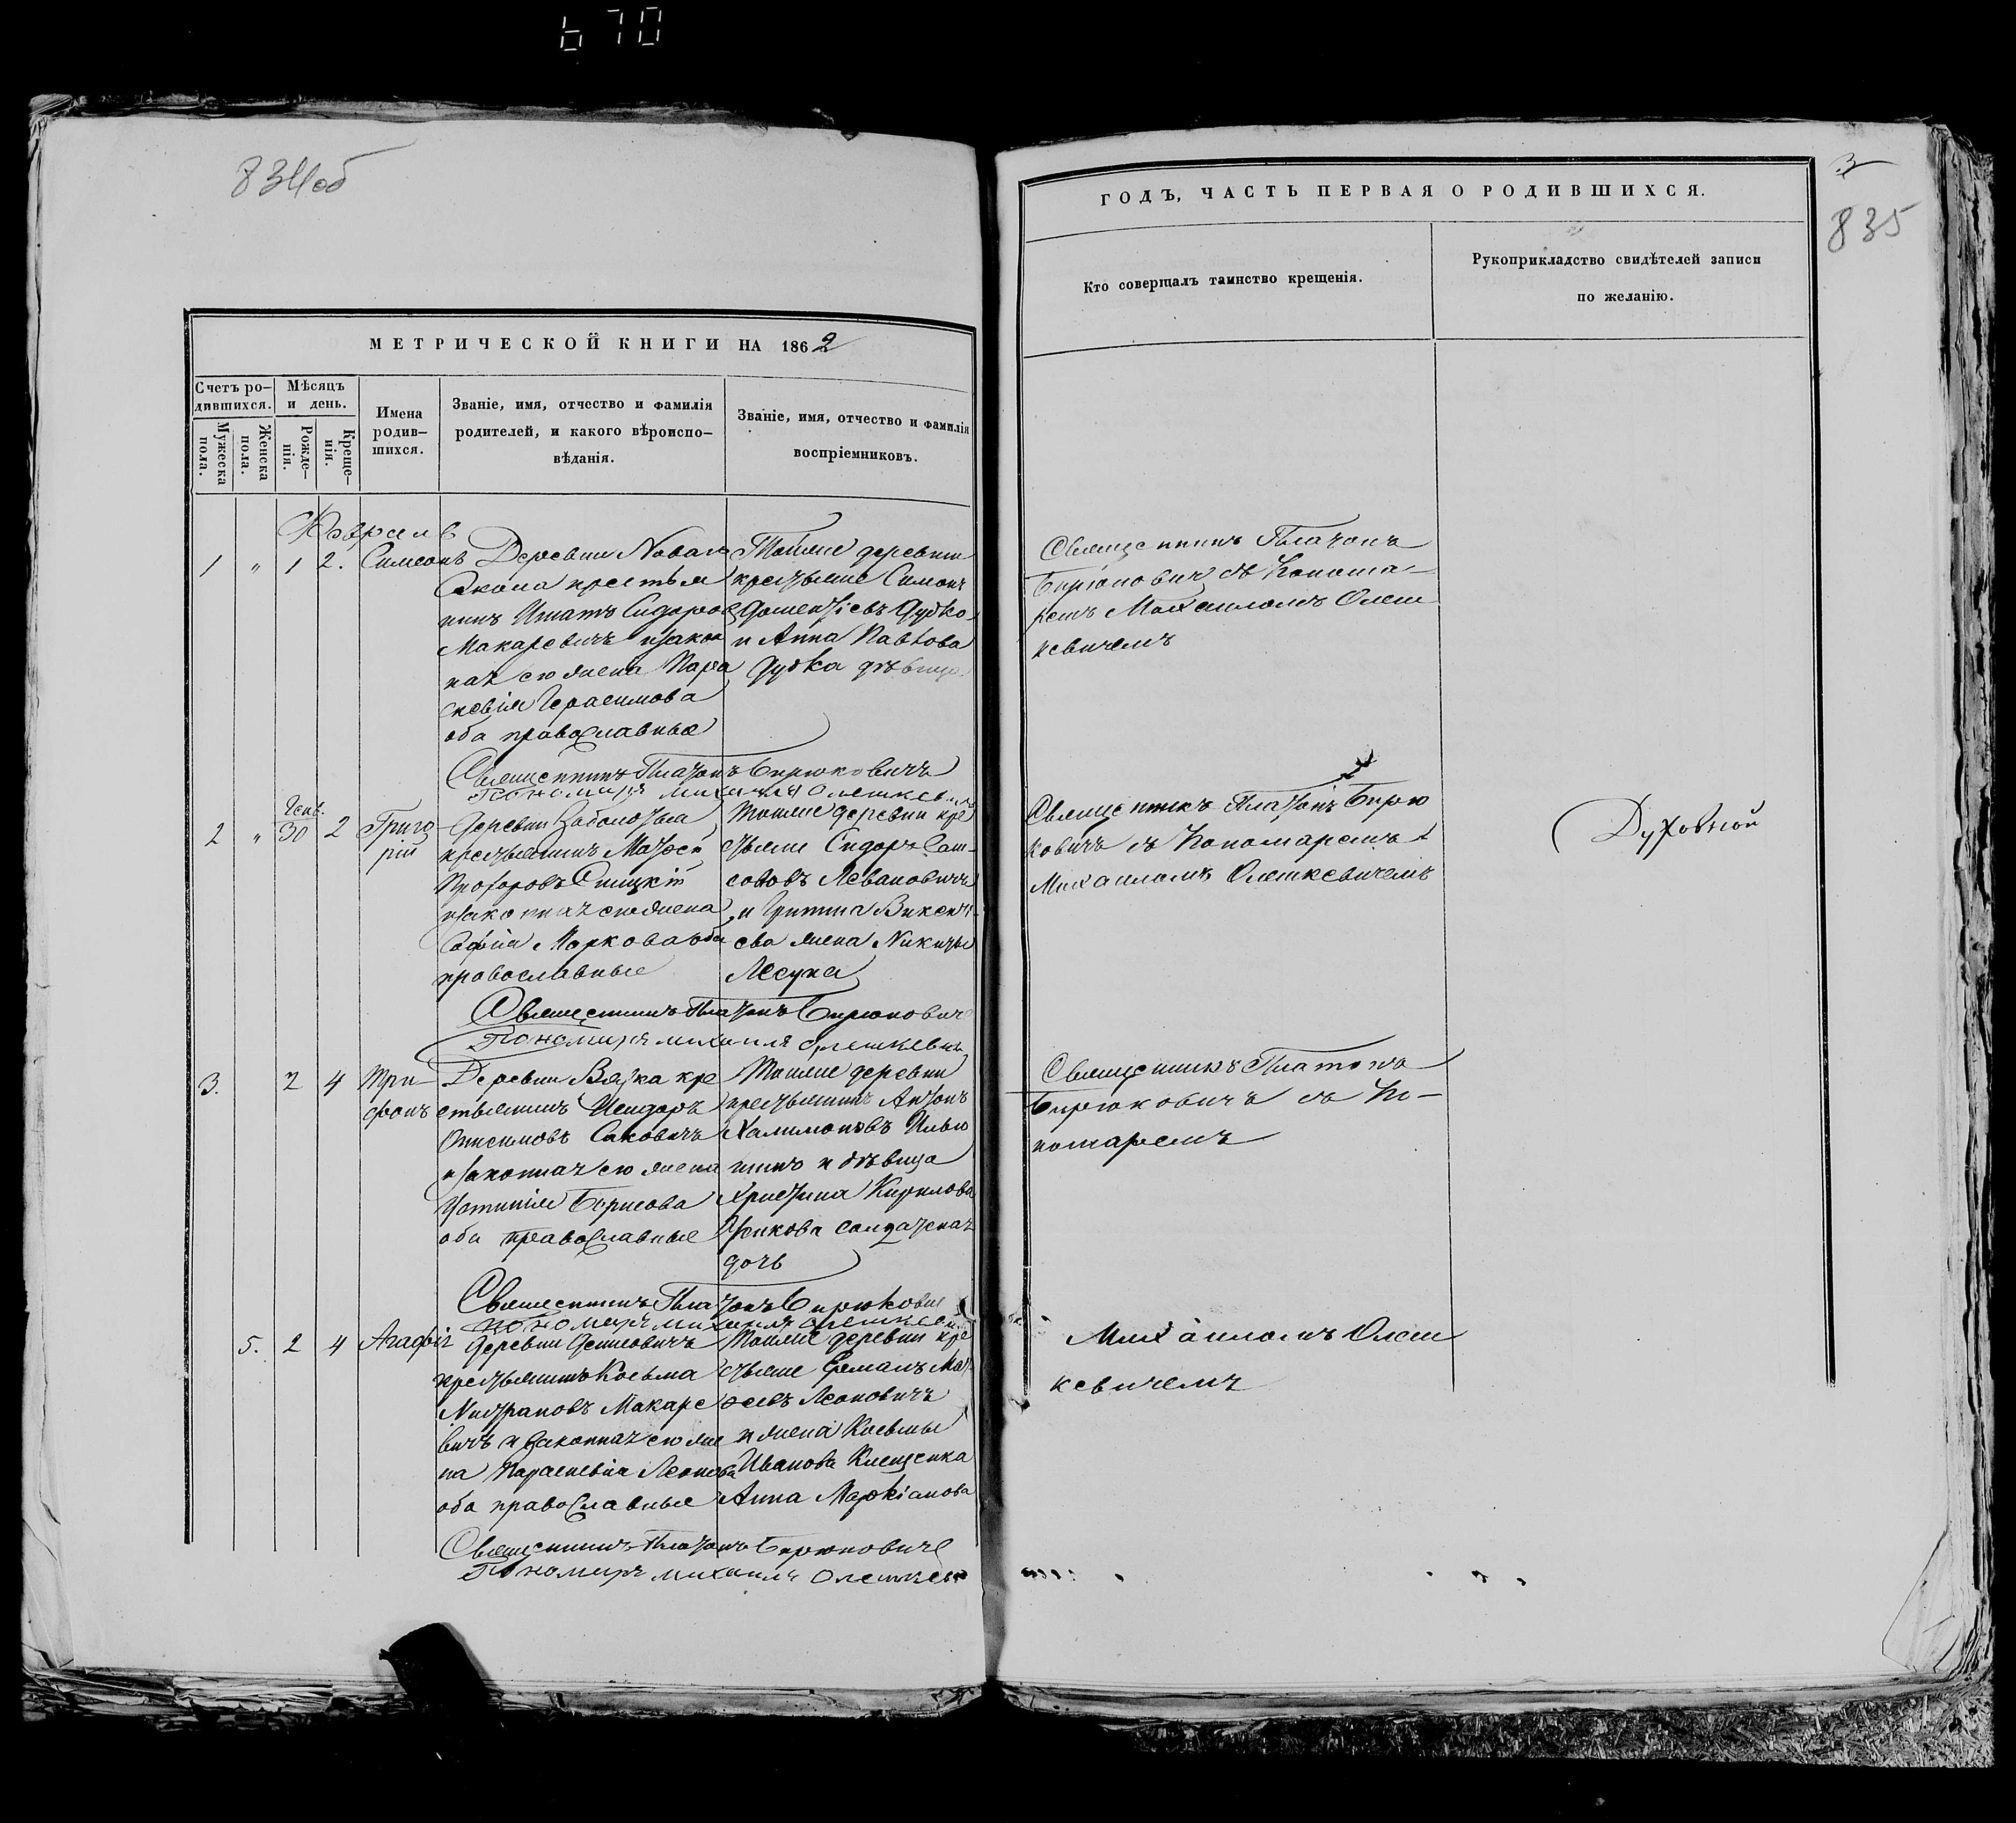 670
834об
МЕТРИЧЕСКОЙ КНИГИ НА 1862
Счетъ ро-
дившихся.
Мужеска
пола.
Женска
пола.
Мѣсяцъ
и день.
Рожде-
нія.
Креще-
нія.
Имена
родив-
шихся.
Званіе, имя, отчество и фамилія
родителей, и какого вѣроиспо-
вѣданія.
Званіе, имя, отчество и фамилія
воспріемниковъ.
Февраль
1 " 1 2. Симеонъ
Деревни
крестья
нинъ Игнатъ Сидоров
Макаревичъ и закон
ная его жена Пара
скевія Герасимова
оба православные
Тойже деревни
крестьяне Симонъ
Дудко
и Анна Павлова
Дудка дѣвица
Священникъ Платонъ Бирюковичъ
Пономарь Михаилъ Олешкевичъ
2 " Генв. 30 2 Григо
рій
Деревни Заболотья
крестьянинъ Матѳей
Прохоровъ
и законная его жена
Софія Маркова оба
православные
Тойже деревни кре
стьяне Сидоръ Сам-
соновъ Левановичъ
и Викенті-
ева жена Никиты
Лесуна
Священникъ Платонъ Бирюковичъ
Пономарь Михаилъ Олешкевич
3. 2 4 Три-
фонъ
Деревни Вязка кре
стьянинъ Исидоръ
Онисимовъ Саковичъ
и законная его жена
Устинія Борисова
оба православные
Тойже деревни
крестьянинъ Антонъ
Халимоновъ Илью
и дѣвица
Христина Кирилова
солдатская
дочь
Священникъ Платонъ Бирюкович
Пономарь Михаилъ Олешкевич
5. 2 4 Агафія
Деревни
крестьянинъ Косьма
Митрановъ Макаре
вичъ и законная его же
на Параскевія Леонова
оба православные
Тойже деревни кре
стьяне Ермалъ Мат
ѳеевъ Леоновичъ
и жена Косьмы
Иванова Клещенка
Анна Маркіанова
Священникъ Платонъ Бирюковичъ
Пономарь Михаилъ Олешкев
3
835
ГОДЪ, ЧАСТЬ ПЕРВАЯ О РОДИВШИХСЯ.
Кто совершалъ таинство крещенія.
Рукоприкладство свидѣтелей записи
по желанію.
Священникъ Платонъ
Бирюковичъ съ Понома-
ремъ Михаиломъ Олеш
кевичемъ
Священникъ Платонъ Бирю
ковичъ съ Пономаремъ
Михаиломъ Олешкевичемъ
Духовной
Священникъ Платонъ
Бирюковичъ съ По-
номаремъ
Михаиломъ Олеш
кевичемъ